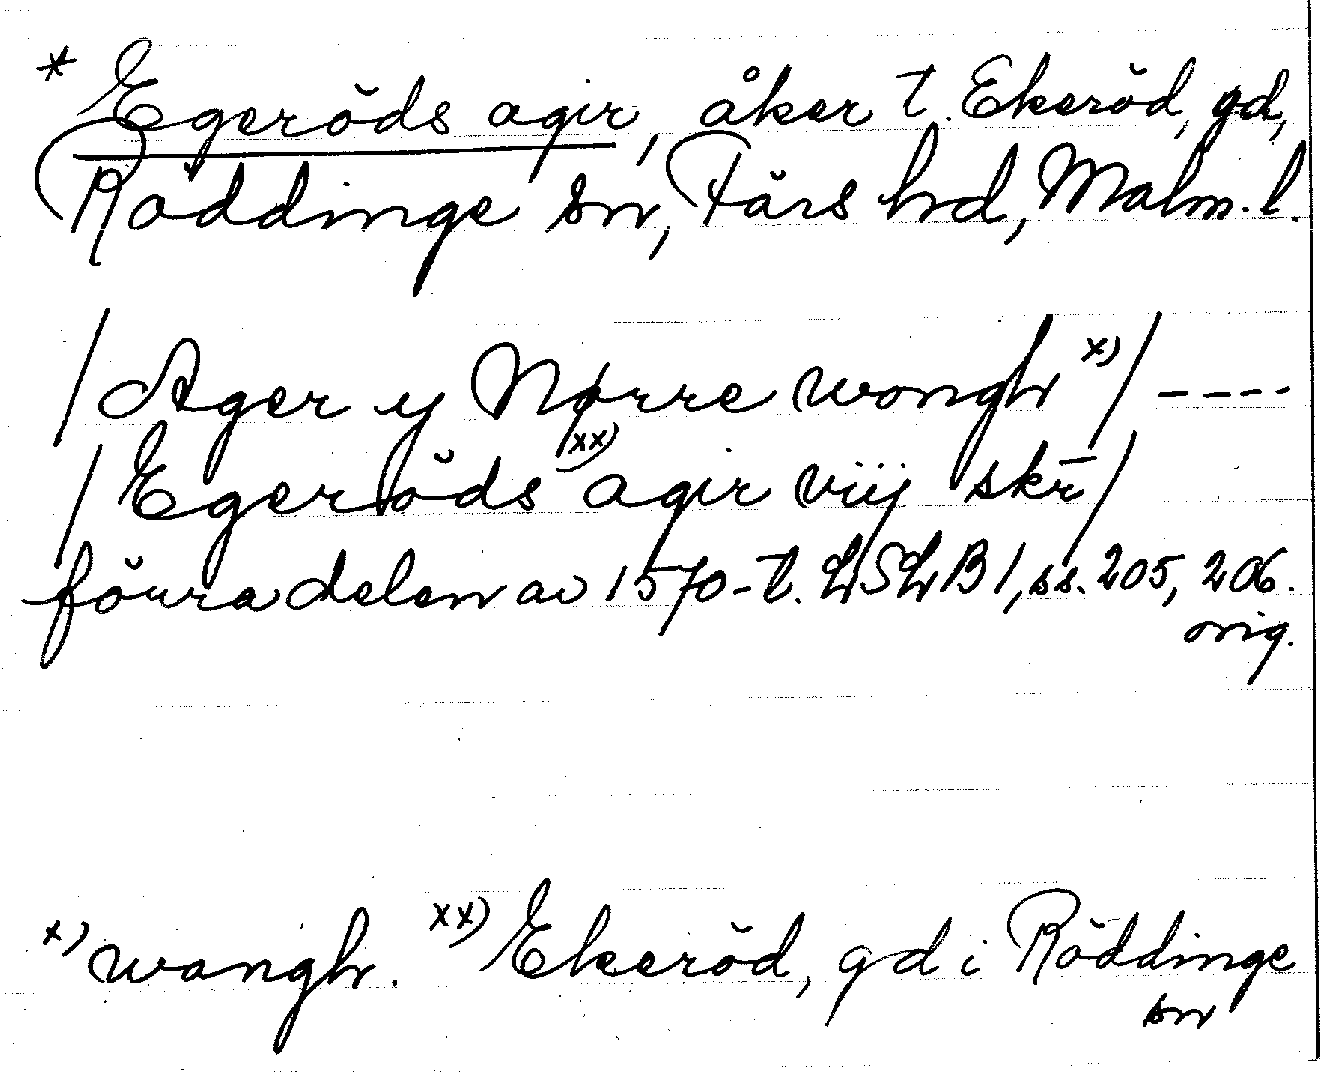 * Egeröds agir, åker t. Ekeröd, gd,
Röddinge sn, Färs hd, Malm. l.
/Ager y Nørre wongh x)/ ----
/Egeröds xx) agir viij skr̄/
förra delen av 1570-t. LSLB1, ss. 205, 206.
orig.
x) wangh. xx) Ekeröd, gd i Röddinge
sn